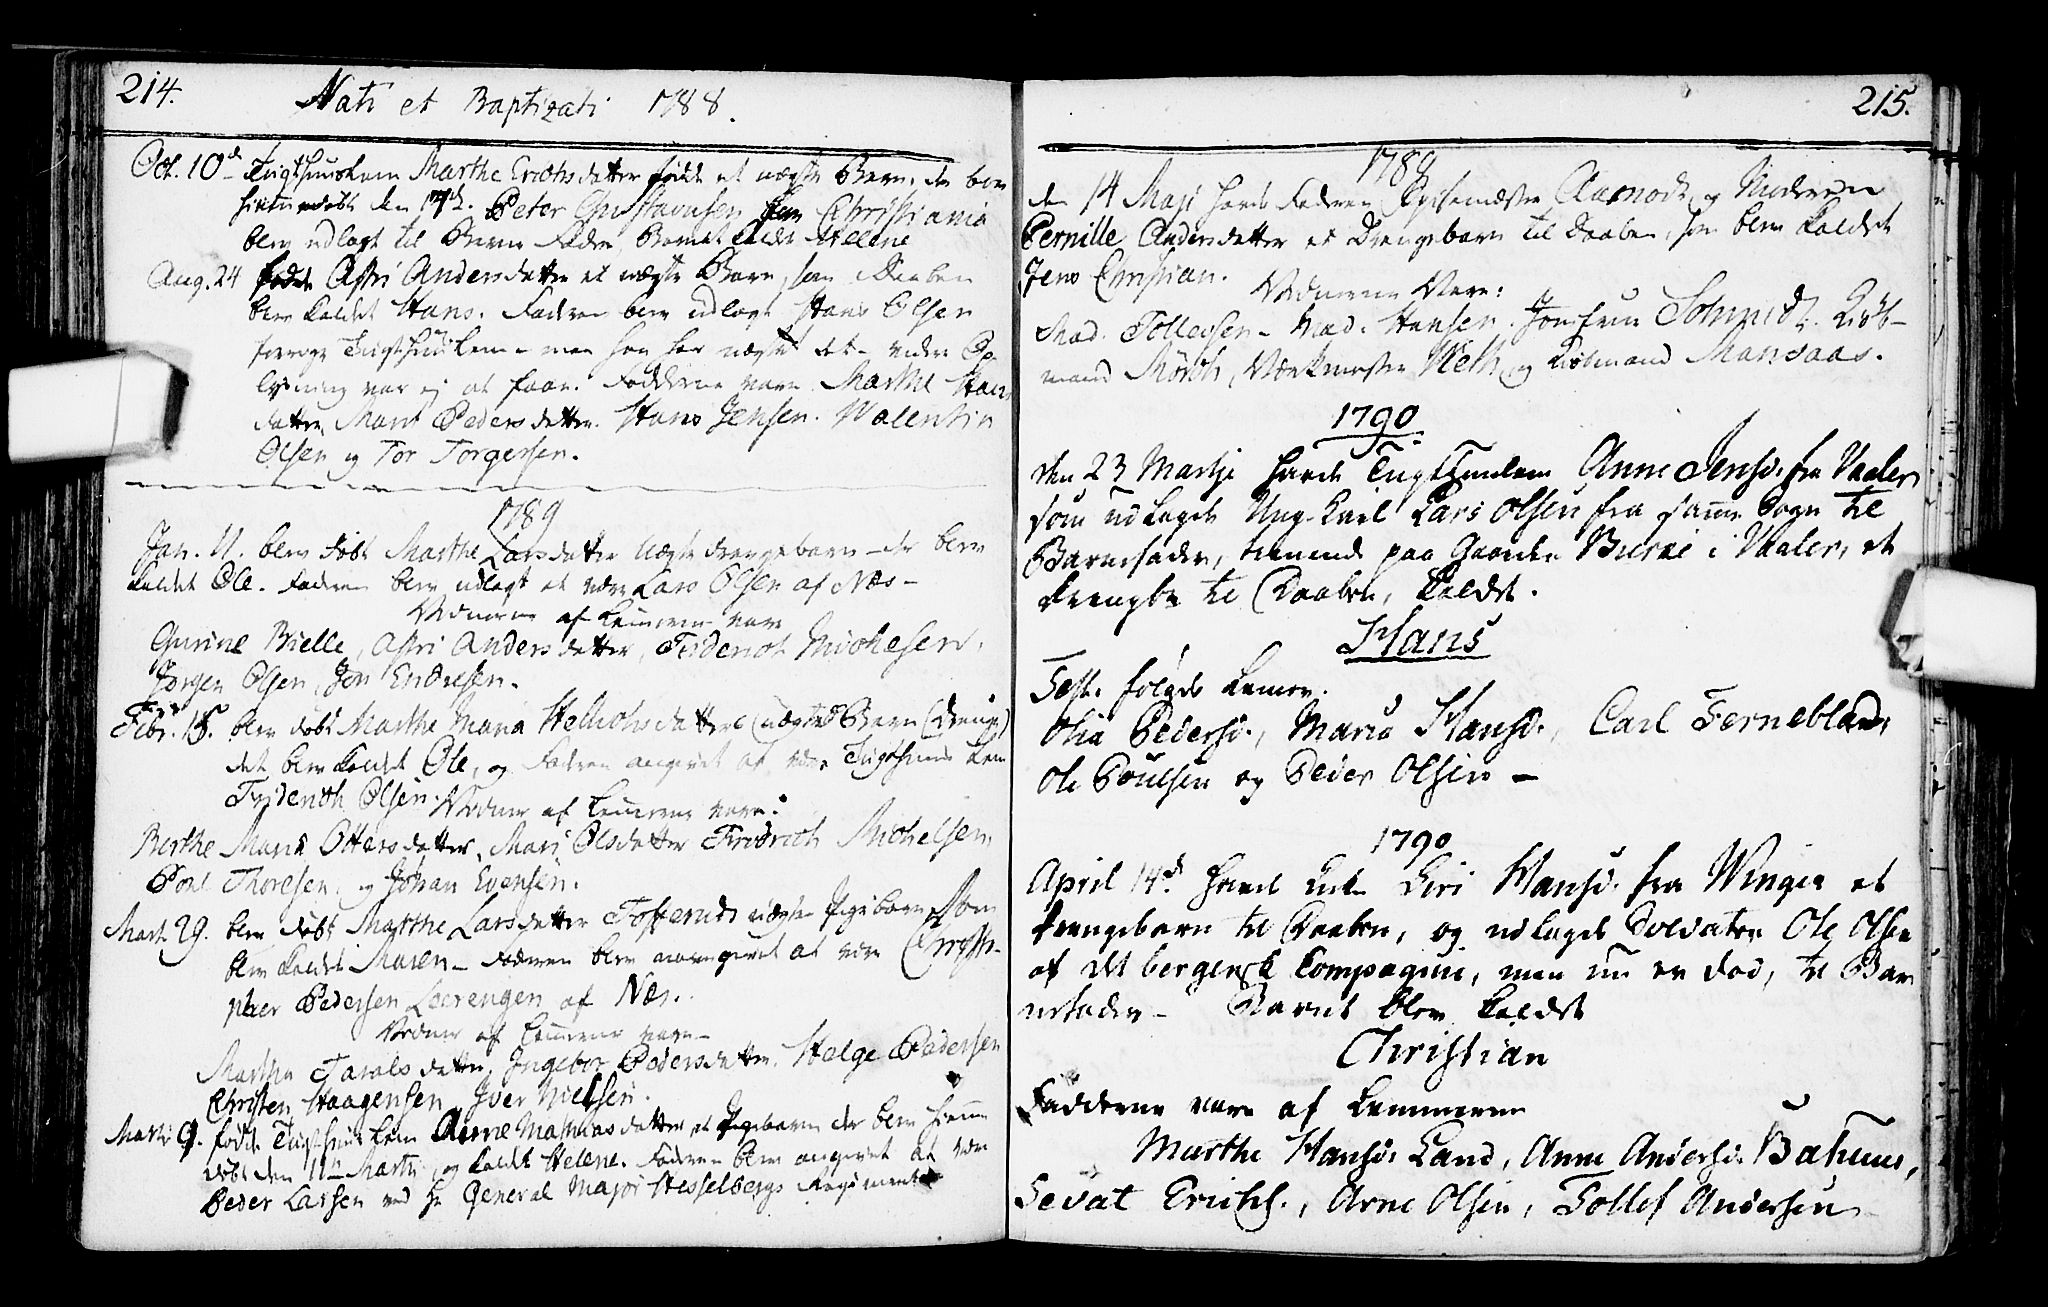 214.
Nati et Baptizati 1788.
Oct. 10d Tugthuuslem Marthe Erichsdatter fødde et uægte Barn, der blev
hiemmedøbt den 17d. Peter Gustavusen fra Christiania
blev udlagt til Barne Fader Barnet kaldt Helene
Aug. 24 fødde Astri Andersdatter et uægte Barn, som i Daaben
blev kaldet Hans. Faderen blev udlagt Hans Olsen
forrige Tugthuuslem - men han har nægtet det - videre Op-
lysning var ej at faae. Fadderne vare Marthe Hans
datter, Marit Pedersdatter. Hans Jensen. Valentin
Olsen og Tor Torgersen.
1789
Jan. 11. blev døbt Marthe Larsdatter uægte drengebarn - der blev
kaldet Ole. Faderen blev udlagt at være Lars Olsen af Næs -
Vidnerne af Lemmerne vare
Gurine Bielke, Astri Andersdatter, Friderich Michelsen,
Jørgen Olsen, Jon Endresen.
Febr. 15. blev døbt Marthe Maria Helliohsdatters uægte Barn (Dreng)
det blev kaldet Ole, og Faderen angivet at være Tugthuus Lem
Friderich Olsen. Vidner af Lemmerne vare:
Berthe Maria Ottersdatter, Mari Olsdatter Fredrich Michelsen,
Poul Thoresen, og Johan Evensen.
Mart. 29. blev døbt Marthe Larsdatter Tosteruds uægte Pigebarn som
blev kaldet Maren - Faderen blev angivet at være Christo-
pher Pedersen Leerengen af Næs.
Vidner af Lemmerne vare -
Marthe Taralsdatter, Ingebor Pedersdatter. Helge Pedersen
Christen Haagensen, Iver Nielsen.
Marti 9. fødde Tugthuuslem Anne Mathiasdatter et Pigebarn der blev hiemme
døbt den 11te Marti, og kaldt Helene. Faderen blev angivet at være
Peder Larsen ved Hr General Major Hesselbergs Regiment
215.
1789
den 14 Maji havde Faderen Spisemester Aamodt og Moderen
Pernille Andersdatter et Drengebarn til Daaben, som blev kaldet
Jens Christian.
Vidnerne Vare:
Mad. Tollevsen - Mad. Hansen. Jomfrue Schmidt. Kiøb-
mand Mørch, Værkmester Weth, og Kiøbmand Mansaas.
1790
den 23 Martji havde Tugtslemlem Anne Jensd. fra Vaaler
som udlagde Ung-Karl Lars Olsen fra samme Sogn til
Barnefader, tienende paa Gaarden Buerne i Vaaler, et
drengebn til Daaben, kaldet.
Hans
Test. følgde Lemer.
Olia Pedersd., Maria Hansd., Carl Fernebland,
Ole Poulsen og Peder Olsen -
1790
April 14d. havde Lem Siri Hansd. fra Winger et
drengebarn til Daaben, og udlagde Soldaten Ole Olsen
af det bergensk Compagnie, men nu er død, til Bar
nefader - Barnet blev kaldet
Christian
Fadderne vare af Lemmerne
Marthe Hansd. Land, Anne Andersd. Bahuus,
Sevat Erichs., Arne Olsen, Tollef Andersen